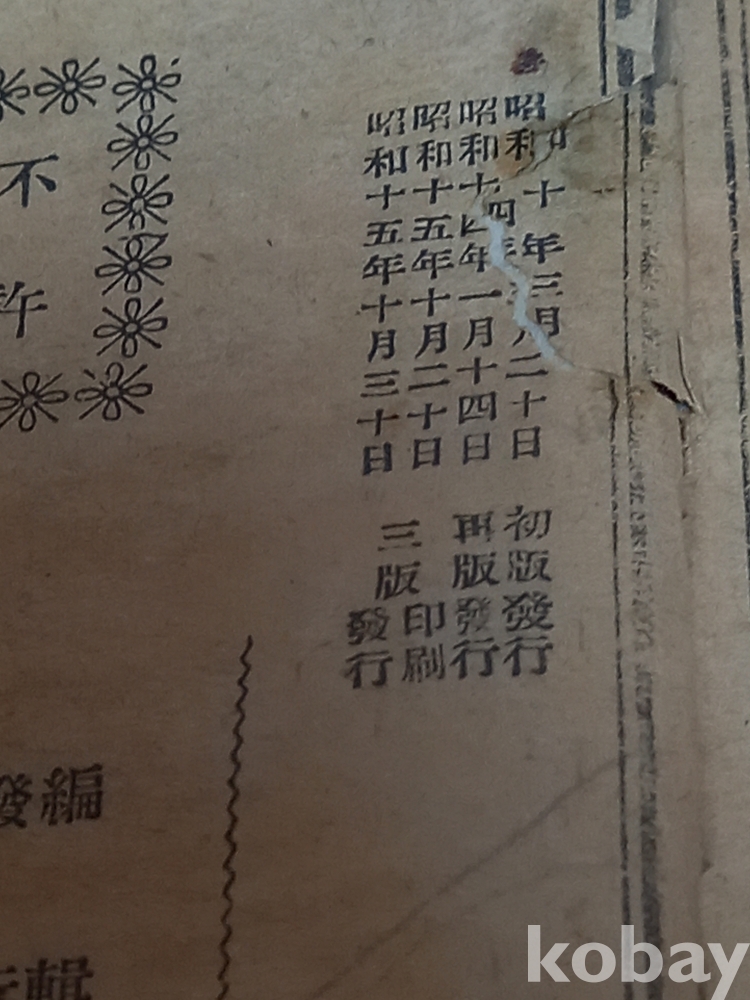 昭和十年三月二十日 初版發行
昭和十四年一月十四日 再版發行
昭和十五年十月二十日 三版印刷
昭和十五年十月三十日 發行
不許
編輯
發
kobay